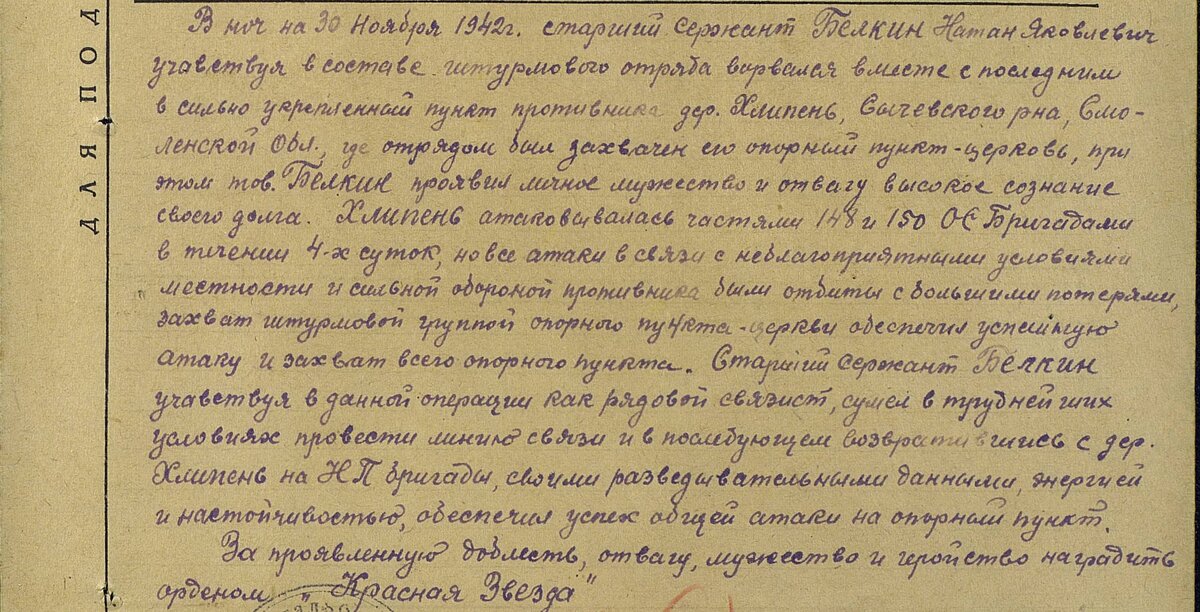 В ноч на 30 ноября 1942г. старший сержант Белкин Натан Яковлевич
учавствуя в составе штурмового отряда ворвался вместе с последним
в сильно укрепленный пункт противника дер. Хлипень, Сычевского рна, Смо-
ленской Обл., где отрядом был захвачен его опорный пункт-церковь, при
этом тов. Белкин проявил личное мужество и отвагу высокое сознание
своего долга. Хлипень атаковывалась частями 148 и 150 ОС Бригадами
в течении 4-х суток, но все атаки в связи с неблагоприятными условиями
местности и сильной обороной противника были отбиты с большими потерями,
захват штурмовой группой опорного пункта-церкви обеспечил успешную
атаку и захват всего опорного пункта. Старший сержант Белкин
учавствуя в данной операции как рядовой связист, сумел в труднейших
условиях провести линию связи и в последующем возвратившись с дер.
Хлипень на НП бригады, своими разведывательными данными, энергией
и настойчивостью, обеспечил успех общей атаки на опорный пункт.
За проявленную доблесть, отвагу, мужество и геройство наградить
орденом „Красная Звезда"
ДЛЯ ПОД